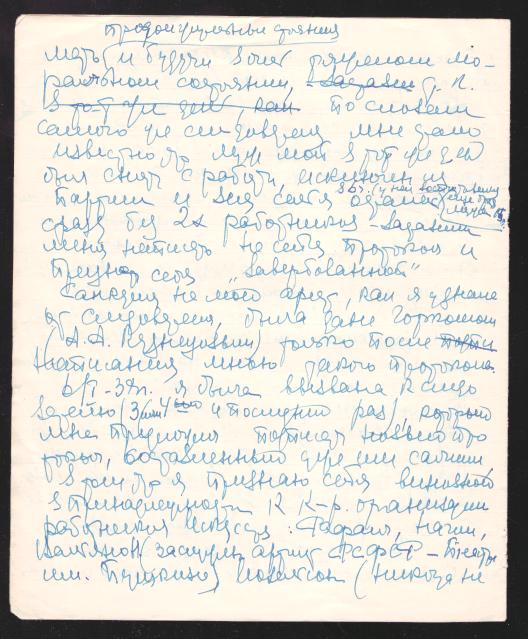 продолжительны стояния
мать и будучи в очень тяжелом мо-
ральном состоянии,
в тот же день, как по словам
самого же следователя мне стало
известно что муж мой в тот же день
был снят с работы, исключен из
партии и вся семья
сразу без 2х работников - заставили
меня написать на себя протокол и
признать себя "завербованной"
Санкция на мой арест, как я узнала
от следователя, была дана Горкомом
(А.А. Кузнецовым) только после
написания мною такого протокола.
6/I-38г. я была вызвана к следо
вателю (3 или 4 и последний раз), который
мне предложил подписать новый про
токол, составленный уже им самим,
в том что я признаю себя виновной
в принадлежности к к-р. организации
работников искусств:
(заслуж. артист РСФСР - Театр
им. Пушкина) (никогда не